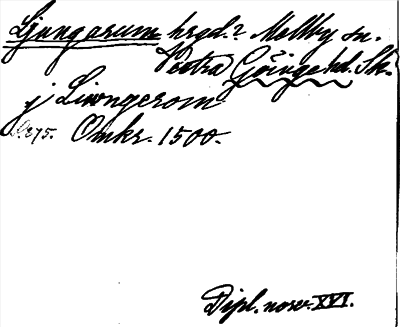 Ljungarum hrgd.? Mellby sn.
Vestra Göingehd. Sk.
j Liwngerom
s. 275. Omkr. 1500.
Dipl. norv. XVI.